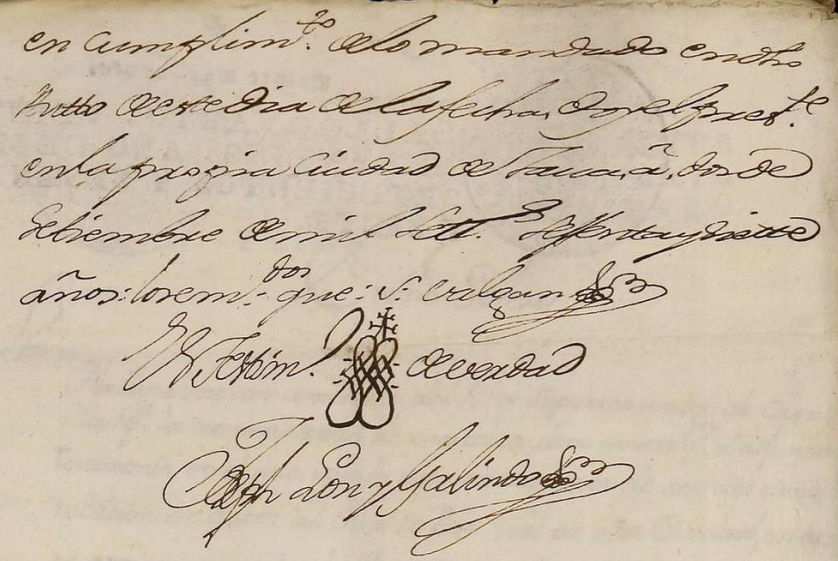 en cumplim.to de lo mandado en dho
Autto de este dia de la fecha, doy el pres.te
en la propia Ciudad de à, dos de
Setiembre de mil sett.s sessenta y siette
años: lo rem.dos que: v.n valgan
En Testim.o de verdad
Joseph Leon y Galindo